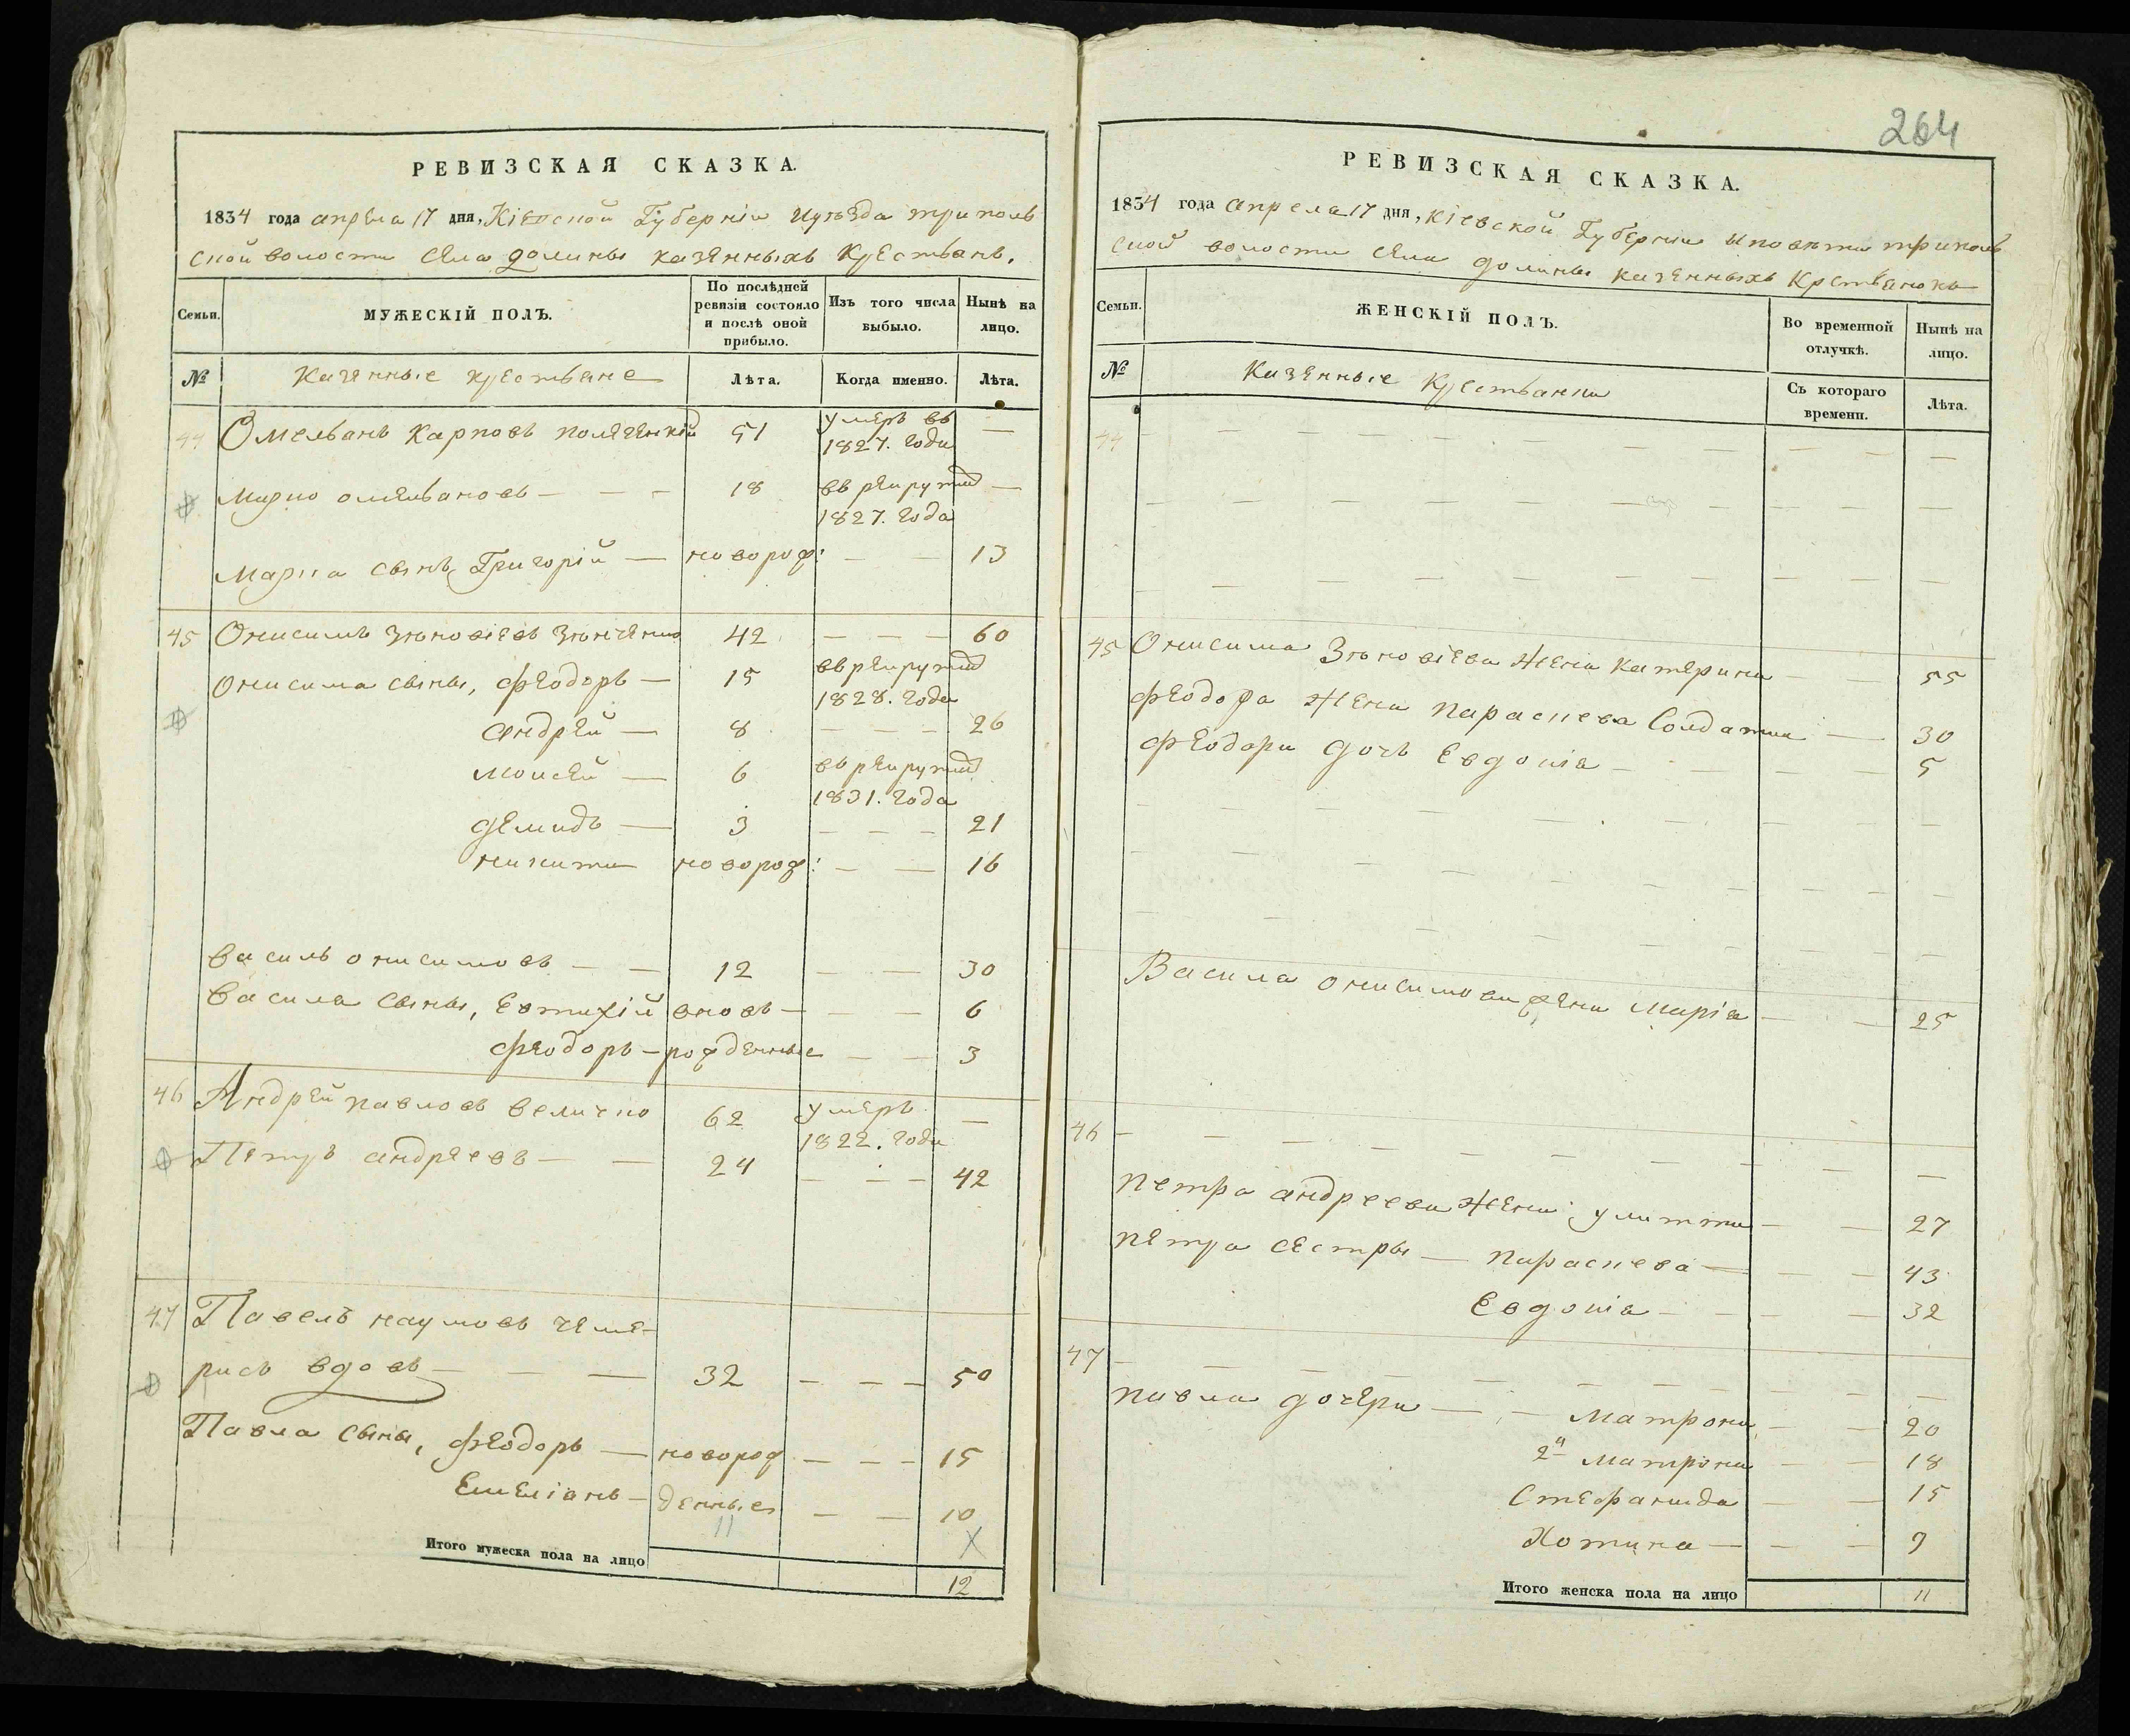 264
РЕВИЗСКАЯ СКАЗКА.
1834 года апреля 17 дня, Кіевской Губерніи и уезда триполь
ской волости села долины казенныхъ Крестьянъ.
Семьи.
МУЖЕСКІЙ ПОЛЪ.
По послѣдней ревизіи состояло и послѣ оной прибыло.
Изъ того числа выбыло.
Нынѣ на лицо.
№
Казенные крестьяне
Лѣта.
Когда именно.
Лѣта.
44 Омельянъ Карповъ 51 умеръ въ 1827. года —
Марко омельяновъ — — — 18 въ рекруты 1827. года —
Марка сынъ Григорій — новорож: — — 13
45 Онисимъ Зѣновіевъ 42 — — — 60
Онисима сыны, Феодоръ — 15 въ рекруты 1828. года
андрей — 8 — — — 26
моисей — 6 въ рекруты 1831. года
демидъ — 3 — — — 21
никита новорож: — — 16
Василь онисимовъ — — 12 — — 30
Василя сыны, Евтихій вновь — — — 6
Феодоръ — рожденные — — 3
46 Андрей павловъ Величко 62 умеръ 1822. года —
Петръ андреевъ — — 24 — — — 42
47 Павелъ наумовъ чеме-
рисъ вдовъ — — — 32 — — — 50
Павла сыны, Феодоръ — новорож — — — 15
Емеліанъ — денные — — 10
11
X
Итого мужеска пола на лицо 12
РЕВИЗСКАЯ СКАЗКА.
1834 года апреля 17 дня, Кіевской Губерніи и повета триполь
ской волости села долины казенныхъ Крстьянокъ
Семьи.
ЖЕНСКІЙ ПОЛЪ.
Во временной отлучкѣ.
Нынѣ на лицо.
№
Казенные Крестьянки
Съ котораго времени.
Лѣта.
44 — — — —
45 Онисима Зѣновіева жена катерина — — 55
Феодора жена параскева Солдатка — 30
Феодора дочь Евдокія — — — 5
Василя онисимова жена марія — — 25
46 — — — —
петра андреева жена улитта — — 27
петра сестры — параскева — — — 43
Евдокія — — — 32
47 — — — —
павла дочери — — матрона — — 20
2я матрона — — 18
Стефанида — — 15
Хотина — — — 9
Итого женска пола на лицо 11